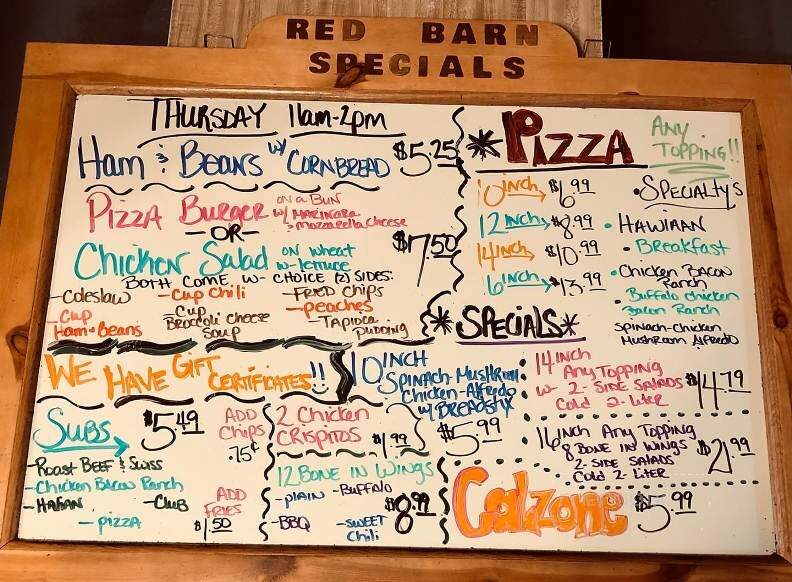 RED BARN
SPECIALS
THURSDAY 11am-2pm
Ham & Beans w/ CORNBREAD $5.25
PIZZA BURGER ON a BUN
w/ MARINARA
& MOZZARELLA CHEESE
-OR-
Chicken Salad ON wheat
w- lettuce
$7.50
BOTH COME W- CHOICE (2) SIDES:
-Coleslaw
-Cup Chili
-FRIED Chips
-Cup
Ham & Beans
-Cup
Broccoli Cheese
Soup
-peaches
-Tapioca
Pudding
WE HAVE GIFT CERTIFICATES!!
SUBS $5.49
ADD
Chips
.75¢
-ROAST BEEF & SWISS
-Chicken Bacon Ranch
-Itallian
-Club
-pizza
ADD
FRIES
$1.50
2 Chicken
CRISPITOS $1.99
12 BONE IN WINGS
-plain
-Buffalo
-BBQ
-SWEET
Chili
$8.99
*PIZZA
ANY
TOPPING!!
10 inch $6.99
12 inch $8.99
14 inch $10.99
16 inch $13.99
•SPECIALTYS
• HAWIIAN
• Breakfast
• Chicken BACON
Ranch
• Buffalo chicken
Bacon Ranch
SPINACH-Chicken
MUSHROOM AlFREDO
*SPECIALS*
10 INCH
SPINACH-MUSHROOM
Chicken-Alfredo
w/ BREADSTIX
$5.99
14 INCH
Any Topping
w- 2- SIDE SALADS
Cold 2-liter
$14.79
16 inch Any Topping
8 BONE IN WINGS
2-SIDE SALADS
Cold 2-liter
$21.99
Calzone $5.99